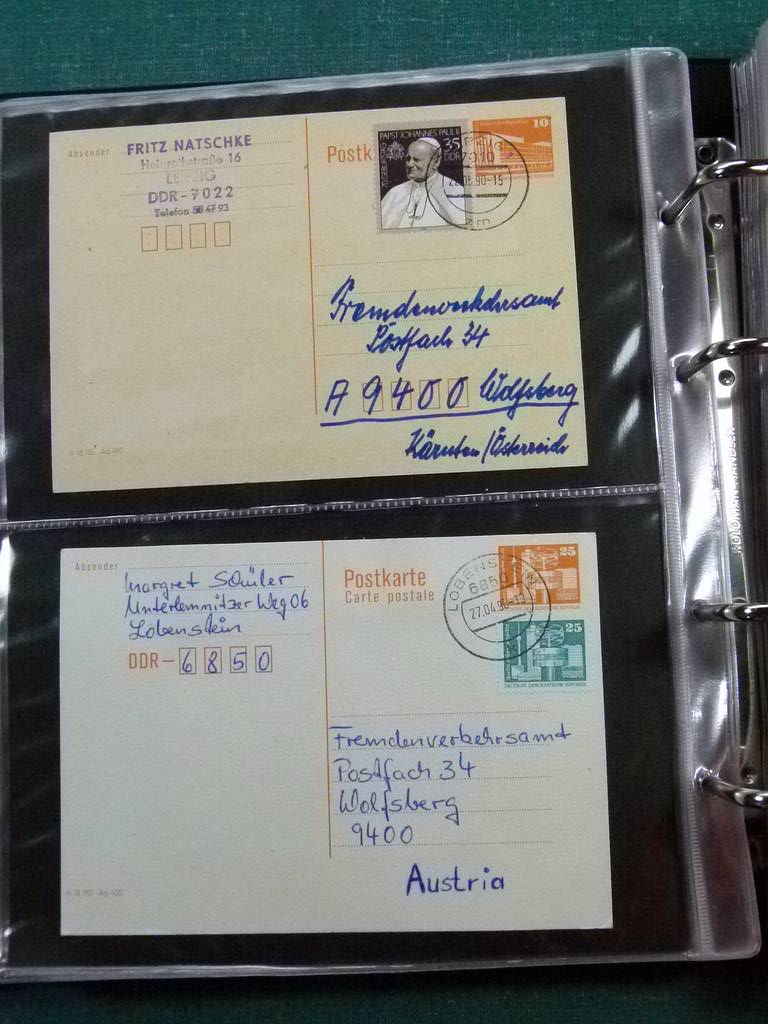 Absender
FRITZ NATSCHKE
16
LEIPZIG
DDR-7022
Telefon 58 47 93
Postk
PAPST JOHANNES PAUL II
35
DDR
10
7010
22.05.90-15
Fremdenverkehrsamt
Postfach 34
A 9400 Wolfsberg
Kärnten/Österreich
Absender
Margret Schüler
Unterlemnitzer Weg 06
Lobenstein
DDR-6850
Postkarte
Carte postale
LOBENSTEIN
6850
27.04.90-13
25
25
DEUTSCHE DEMOKRATISCHE REPUBLIK
Fremdenverkehrsamt
Postfach 34
Wolfsberg
9400
Austria